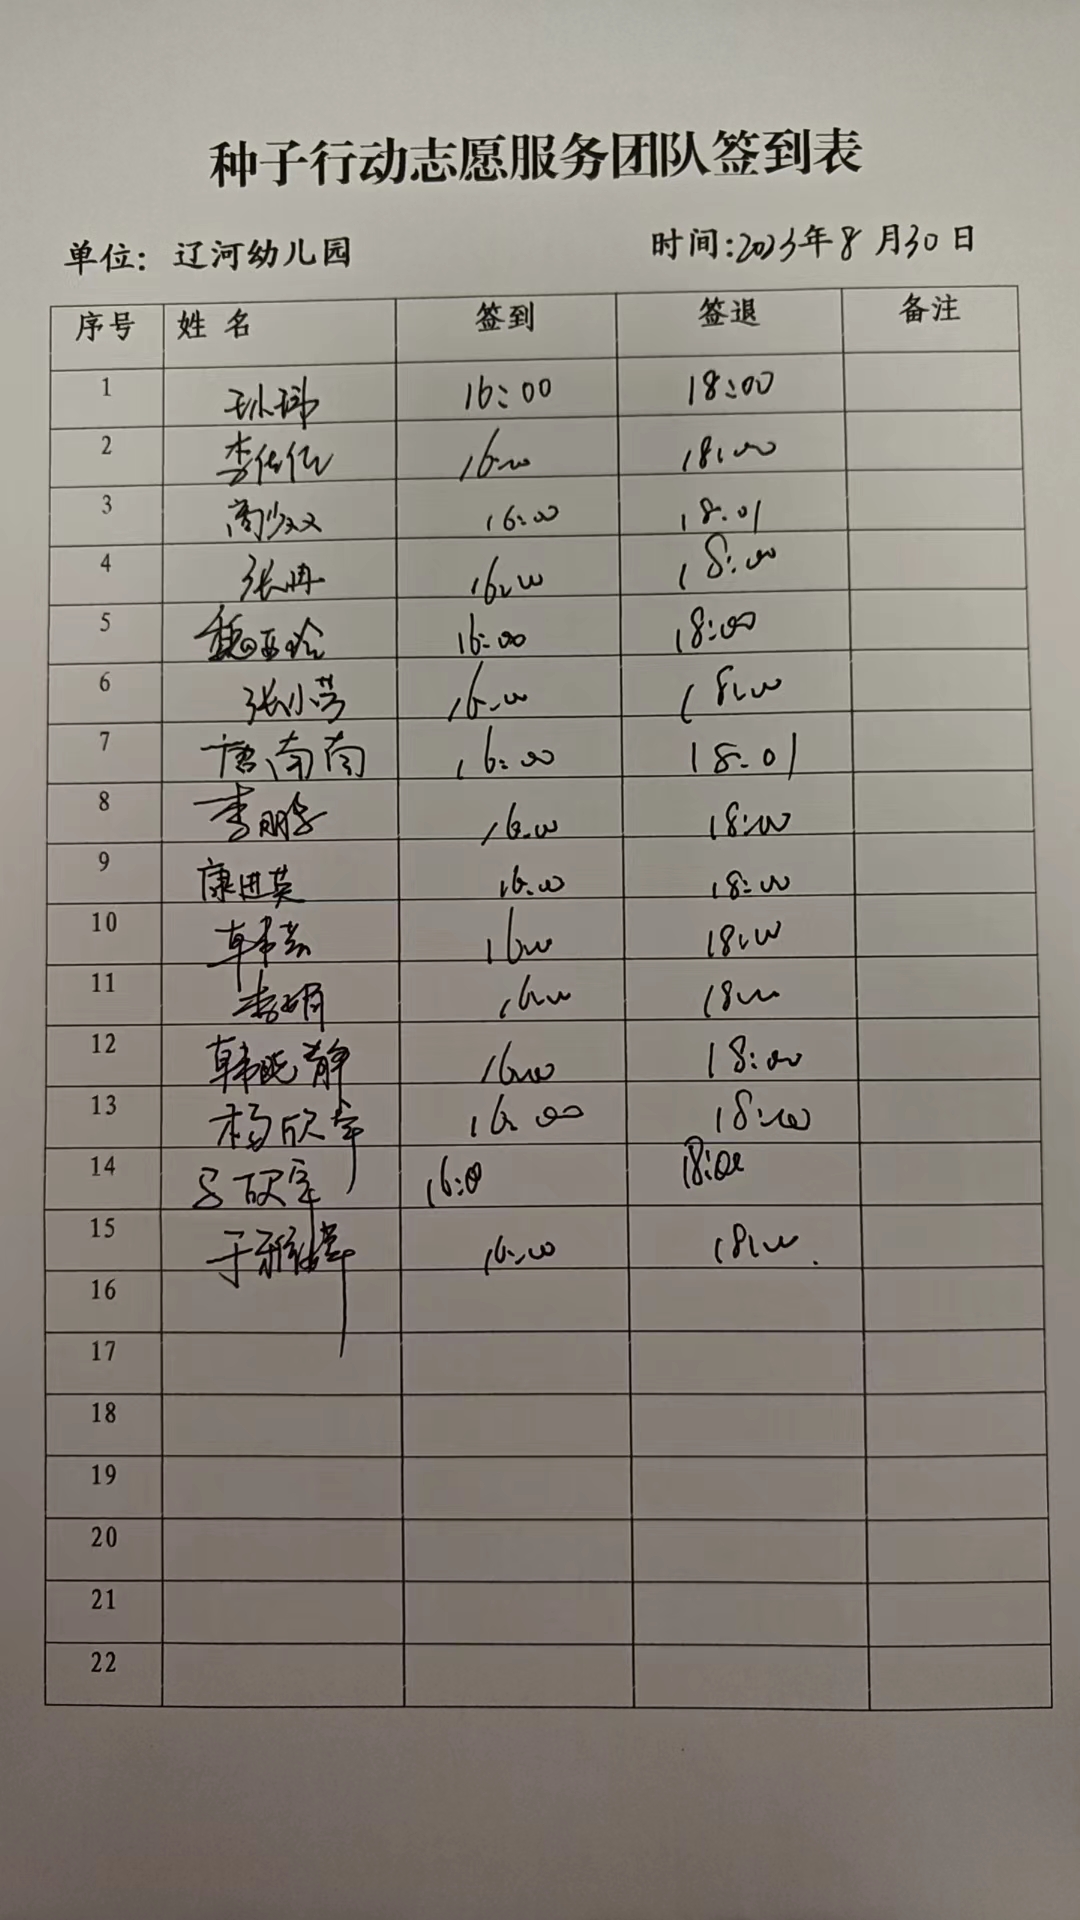 种子行动志愿服务团队签到表
单位：辽河幼儿园 时间:2023年8月30日
序号 姓名 签到 签退 备注
1 孙玮 16:00 18:00
2 李佳 16:00 18:00
3 商少双 16:00 18:01
4 张冉 16:00 18:00
5 魏亚玲 16:00 18:00
6 张小芳 16:00 18:00
7 唐南南 16:00 18:01
8 李朋 16:00 18:00
9 康进英 16:00 18:00
10 韩 16:00 18:00
11 李娟 16:00 18:00
12 韩晓静 16:00 18:00
13 杨欣 16:00 18:00
14 16:00 18:00
15 于雅婷 16:00 18:00
16
17
18
19
20
21
22